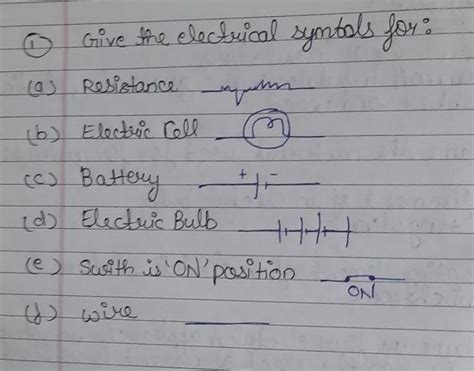 ① Give the electrical symbols for:
(a) Resistance
(b) Electric Cell
(c) Battery + -
(d) Electric Bulb
(e) Swith is 'ON' position ON
(f) wire